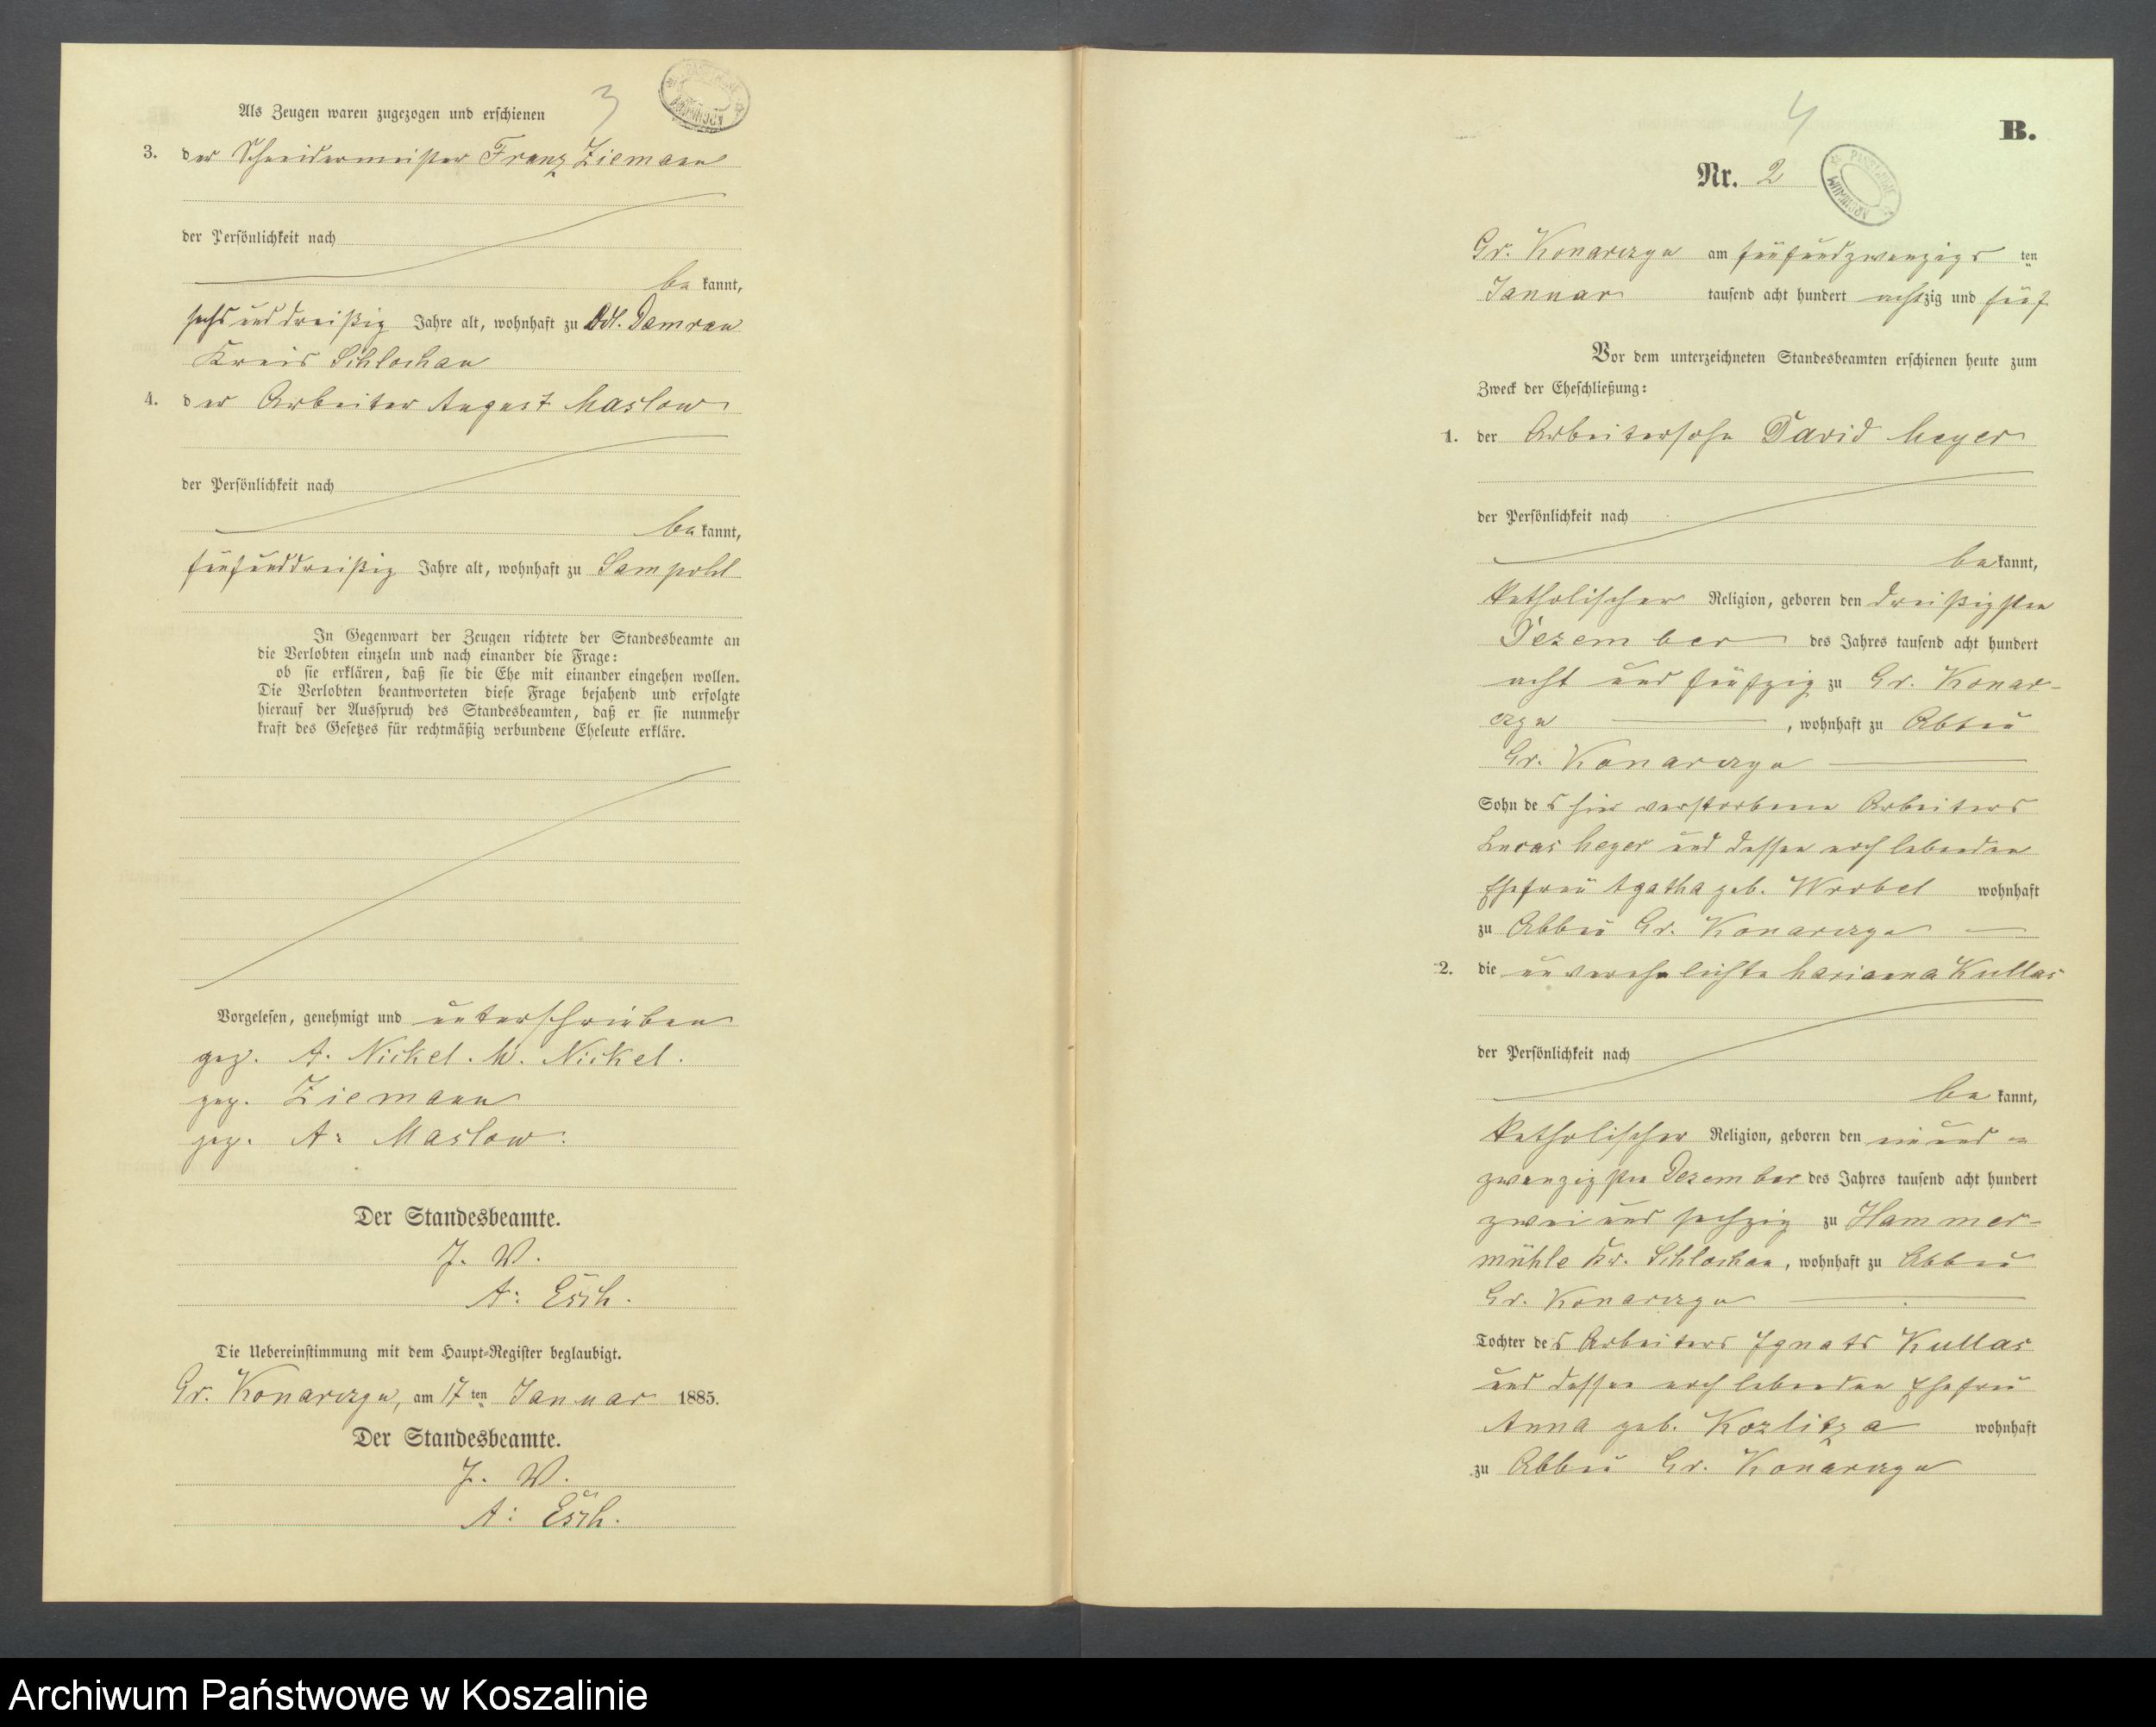 Als Zeugen waren zugezogen und erschienen
3
3. der Schneidermeister Franz Ziemann
der Persönlichkeit nach
be kannt,
sechs und dreißig Jahre alt, wohnhaft zu Adl. Damrau
Kreis Schlochau
4. der Arbeiter August Maslow
der Persönlichkeit nach
be kannt,
fünfunddreißig Jahre alt, wohnhaft zu Sampohl
In Gegenwart der Zeugen richtete der Standesbeamte an
die Verlobten einzeln und nach einander die Frage:
ob sie erklären, daß sie die Ehe mit einander eingehen wollen.
Die Verlobten beantworteten diese Frage bejahend und erfolgte
hierauf der Ausspruch des Standesbeamten, daß er sie nunmehr
kraft des Gesetzes für rechtmäßig verbundene Eheleute erkläre.
Vorgelesen, genehmigt und unterschrieben
gez. A. Nickel. M. Nickel.
gez. Ziemann
gez. A. Maslow.
Der Standesbeamte.
J. V.
A. Esch.
Die Uebereinstimmung mit dem Haupt-Register beglaubigt.
Gr. Konarczyn, am 17 ten Januar 1885.
Der Standesbeamte.
J. V.
A. Esch.
4
B.
Nr. 2
Gr. Konarczyn am fünfundzwanzigs ten
Januar tausend acht hundert achtzig und fünf
Vor dem unterzeichneten Standesbeamten erschienen heute zum
Zweck der Eheschließung:
1. der Arbeitersohn David Meyer
der Persönlichkeit nach
be kannt,
katholischer Religion, geboren den dreißigsten
Dezember des Jahres tausend acht hundert
acht und fünfzig zu Gr. Konar-
czyn, wohnhaft zu Abbau
Gr. Konarczyn
Sohn des hier verstorbenen Arbeiters
Lucas Meyer und dessen noch lebenden
Ehefrau Agatha geb. Wrobel wohnhaft
zu Abbau Gr. Konarczyn
2. die unverehelichte Marianna Kullas
der Persönlichkeit nach
be kannt,
katholischer Religion, geboren den ein und
zwanzigsten Dezember des Jahres tausend acht hundert
zwei und sechzig zu Hammer-
mühle Kr. Schlochau, wohnhaft zu Abbau
Gr. Konarczyn
Tochter des Arbeiters Ignats Kullas
und dessen noch lebenden Ehefrau
Anna geb. Kozlitza wohnhaft
zu Abbau Gr. Konarczyn
Archiwum Państwowe w Koszalinie